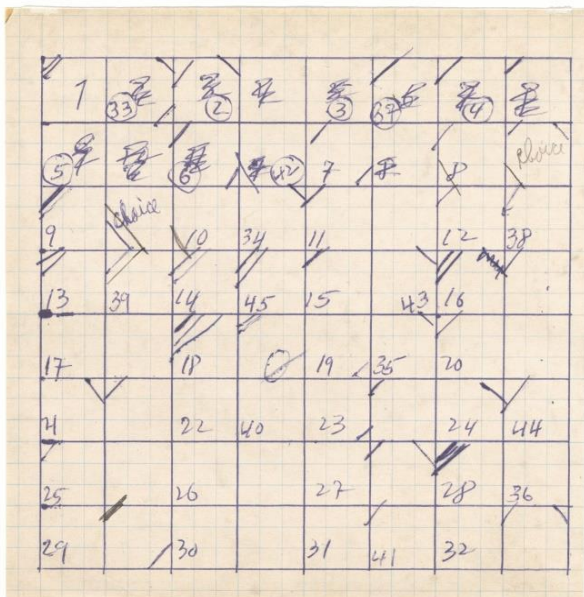 1 33 2 3 67 4
5 6 42 7 8 choice
choice
9 10 34 11 12 38
13 39 14 45 15 43 16
17 18 19 35 20
21 22 40 23 24 44
25 26 27 28 36
29 30 31 41 32